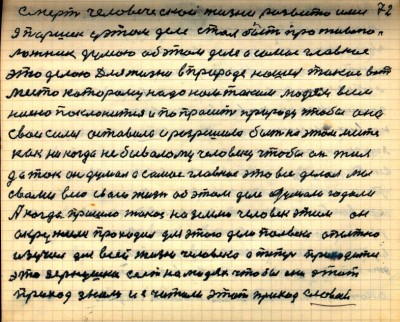 смерть человеческой жизни развито или 72
Я паршек в этом деле стал быть противопо-
ложник думаю об этом деле о самое главное
это делаю Для жизни в природе нашел такое вот
место которому надо нам таким людям всем
низко поклониться и попросить природу чтобы она
свои силы оставила и разрешила быть на этом месте
как никогда небывалому человеку чтобы он жил
да так он думал о самое главное это все делал мы
с вами всю свою жизнь об этом деле думали гадали
А когда пришло такое на землю человек этим он
окружили проходил для этого дело полвека опытно
изучил для всей жизни человека о пути приходите
это зернушка сеял на людях чтобы они этот
приход знали и считали этот приход славой